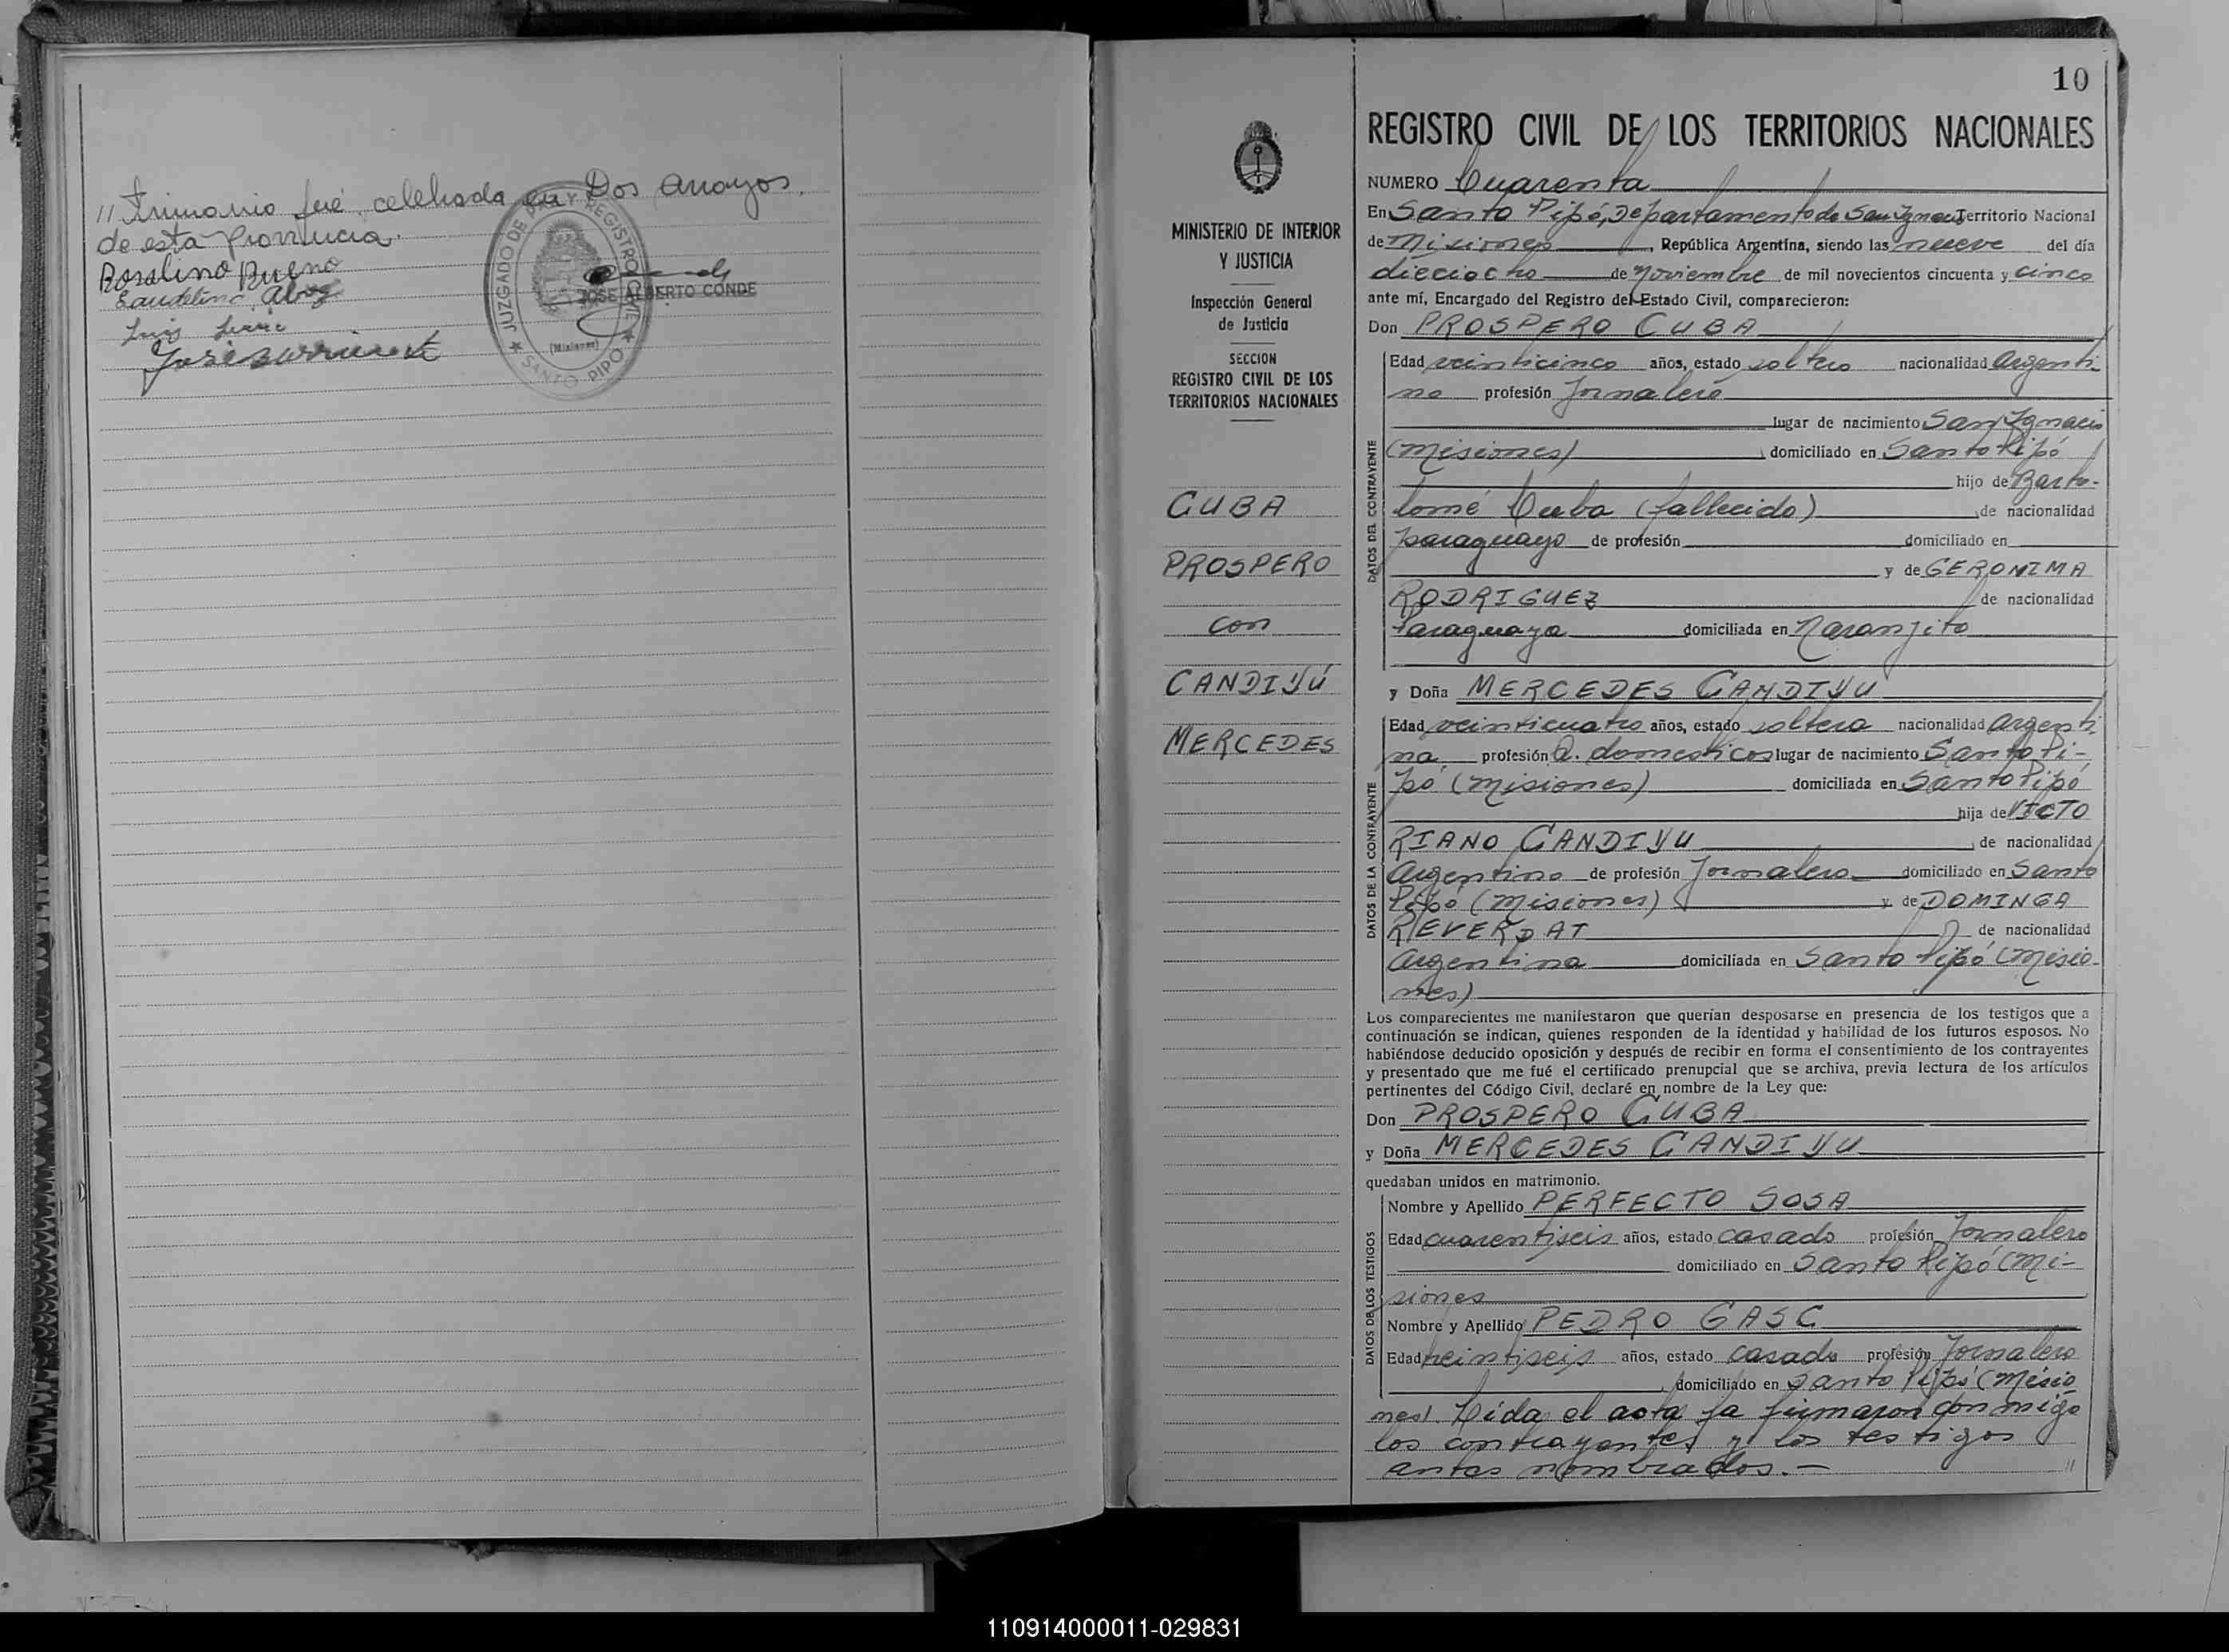 // trimonio fué celebrada en Dos Arroyos
de esta Provincia.
Rosalino Bueno
Luis
José
JUZGADO DE PAZ Y REGISTRO CIVIL
JOSE ALBERTO CONDE
(Misiones)
★ SANTO PIPO ★
10
MINISTERIO DE INTERIOR
Y JUSTICIA
Inspección General
de Justicia
SECCION
REGISTRO CIVIL DE LOS
TERRITORIOS NACIONALES
CUBA
PROSPERO
con
CANDIYÚ
MERCEDES
REGISTRO CIVIL DE LOS TERRITORIOS NACIONALES
NUMERO Cuarenta
En Santo Pipó, Departamento de San Ignacio Territorio Nacional
de Misiones, República Argentina, siendo las nueve del día
dieciocho de Noviembre de mil novecientos cincuenta y cinco
ante mí, Encargado del Registro del Estado Civil, comparecieron:
Don PROSPERO CUBA
DATOS DEL CONTRAYENTE
Edad veinticinco años, estado soltero nacionalidad Argenti-
no profesión Jornalero
lugar de nacimiento San Ignacio
(Misiones), domiciliado en Santo Pipó
hijo de Barto-
lomé Cuba (fallecido), de nacionalidad
paraguayo de profesión domiciliado en
y de GERONIMA
RODRIGUEZ de nacionalidad
Paraguaya domiciliada en Naranjito
y Doña MERCEDES CANDIYU
DATOS DE LA CONTRAYENTE
Edad veinticuatro años, estado soltera nacionalidad argenti-
na profesión Q. domesticos lugar de nacimiento Santo Pi-
pó (Misiones) domiciliada en Santo Pipó
hija de VICTO
RIANO CANDIYU, de nacionalidad
Argentino de profesión Jornalero domiciliado en Santo
Pipó (Misiones) y de DOMINGA
REVERDAT de nacionalidad
Argentina domiciliada en Santo Pipó (Misio-
nes)
Los comparecientes me manifestaron que querían desposarse en presencia de los testigos que a
continuación se indican, quienes responden de la identidad y habilidad de los futuros esposos. No
habiéndose deducido oposición y después de recibir en forma el consentimiento de los contrayentes
y presentado que me fué el certificado prenupcial que se archiva, previa lectura de los artículos
pertinentes del Código Civil, declaré en nombre de la Ley que:
Don PROSPERO CUBA
y Doña MERCEDES CANDIYU
quedaban unidos en matrimonio.
DATOS DE LOS TESTIGOS
Nombre y Apellido PERFECTO SOSA
Edad cuarentiseis años, estado casado profesión Jornalero
domiciliado en Santo Pipó (Mi-
siones
Nombre y Apellido PEDRO GASC
Edad veintiseis años, estado casado profesión Jornalero
domiciliado en Santo Pipó (Misio
nes). Leida el acta la firmaron conmigo
los contrayentes y los testigos
antes nombrados.— //
110914000011-029831